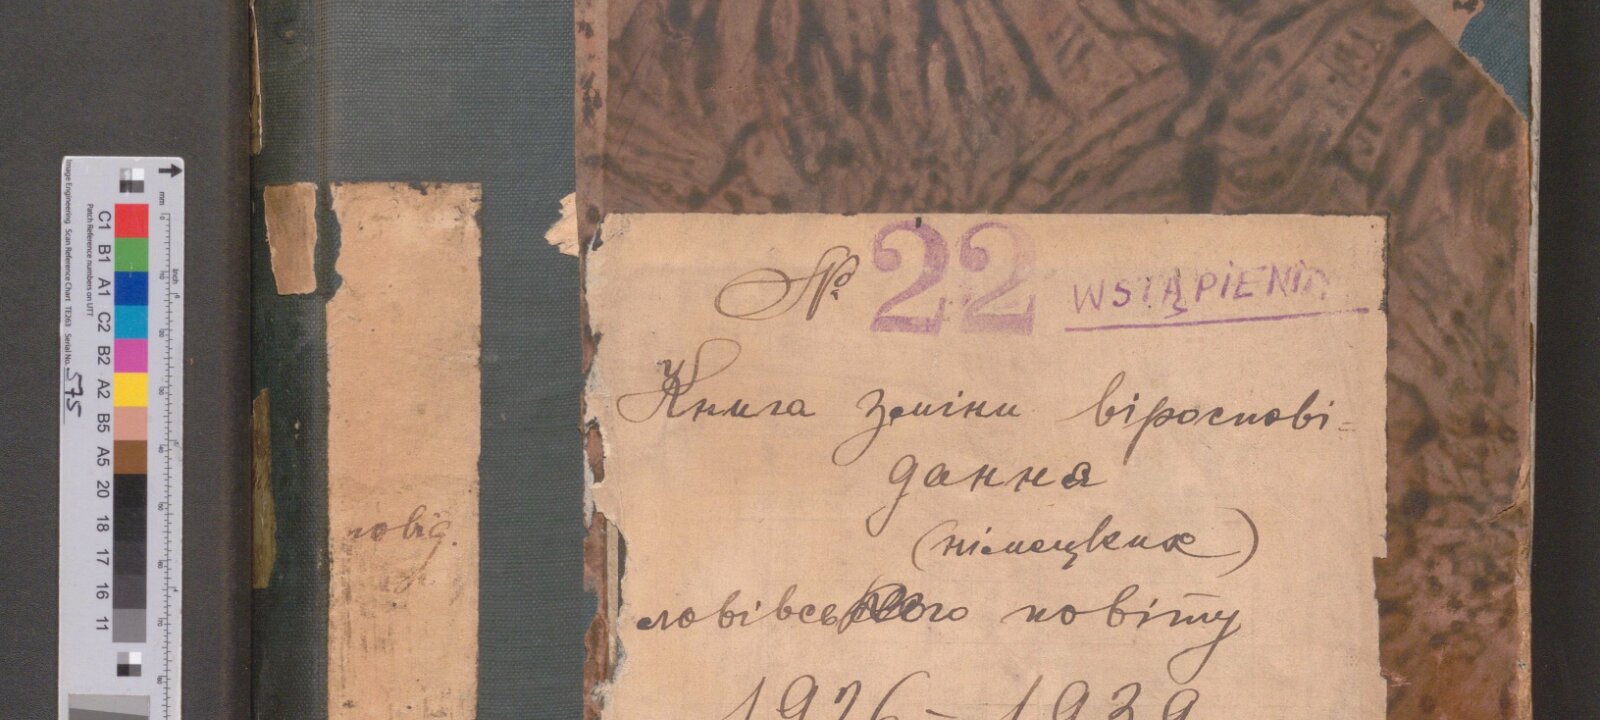 Image Engineering Scan Reference Chart TE263 Serial No. 575
Patch Reference numbers on UTT
mm
inch
C1
B1
A1
C2
B2
A2
B5
A5
20
18
17
16
11
повіт.
№ 22 WSTĄPIENIA
Книга зміни віроспові-
дання
(німецьких)
повіту
1926 – 1939